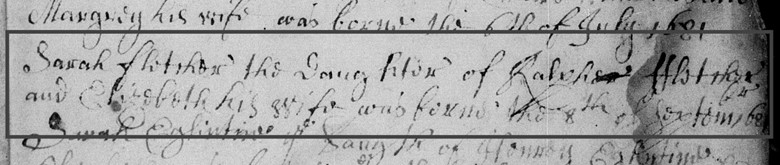 Margrey his wife was borne the 6th of July 1681
Sarah fletcher the Daughter of Ralphe ffletcher
and Elizabeth his wife was borne the 8th of September
Sarah daught of Henery